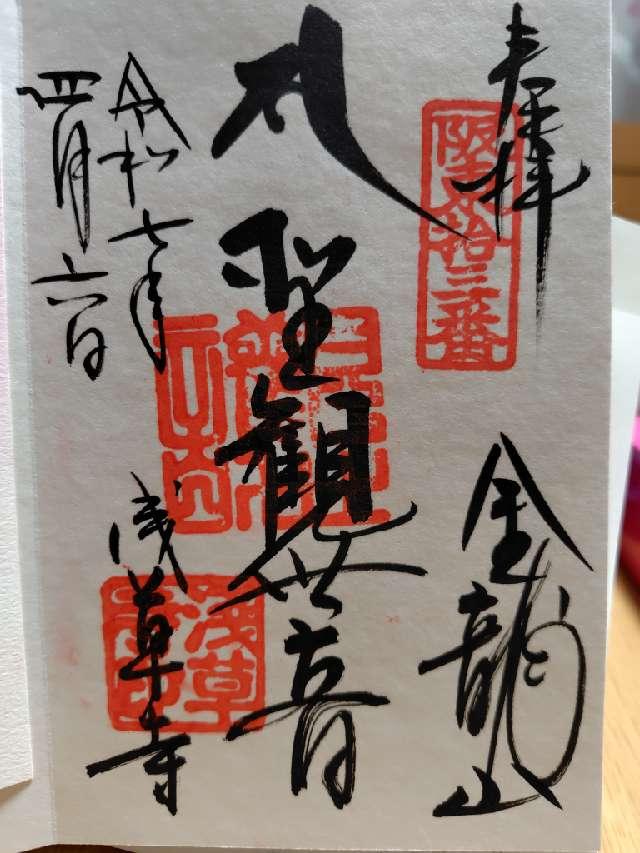 奉拝
坂東拾三番
金龍山
聖観世音
令和七年
四月六日
浅草寺